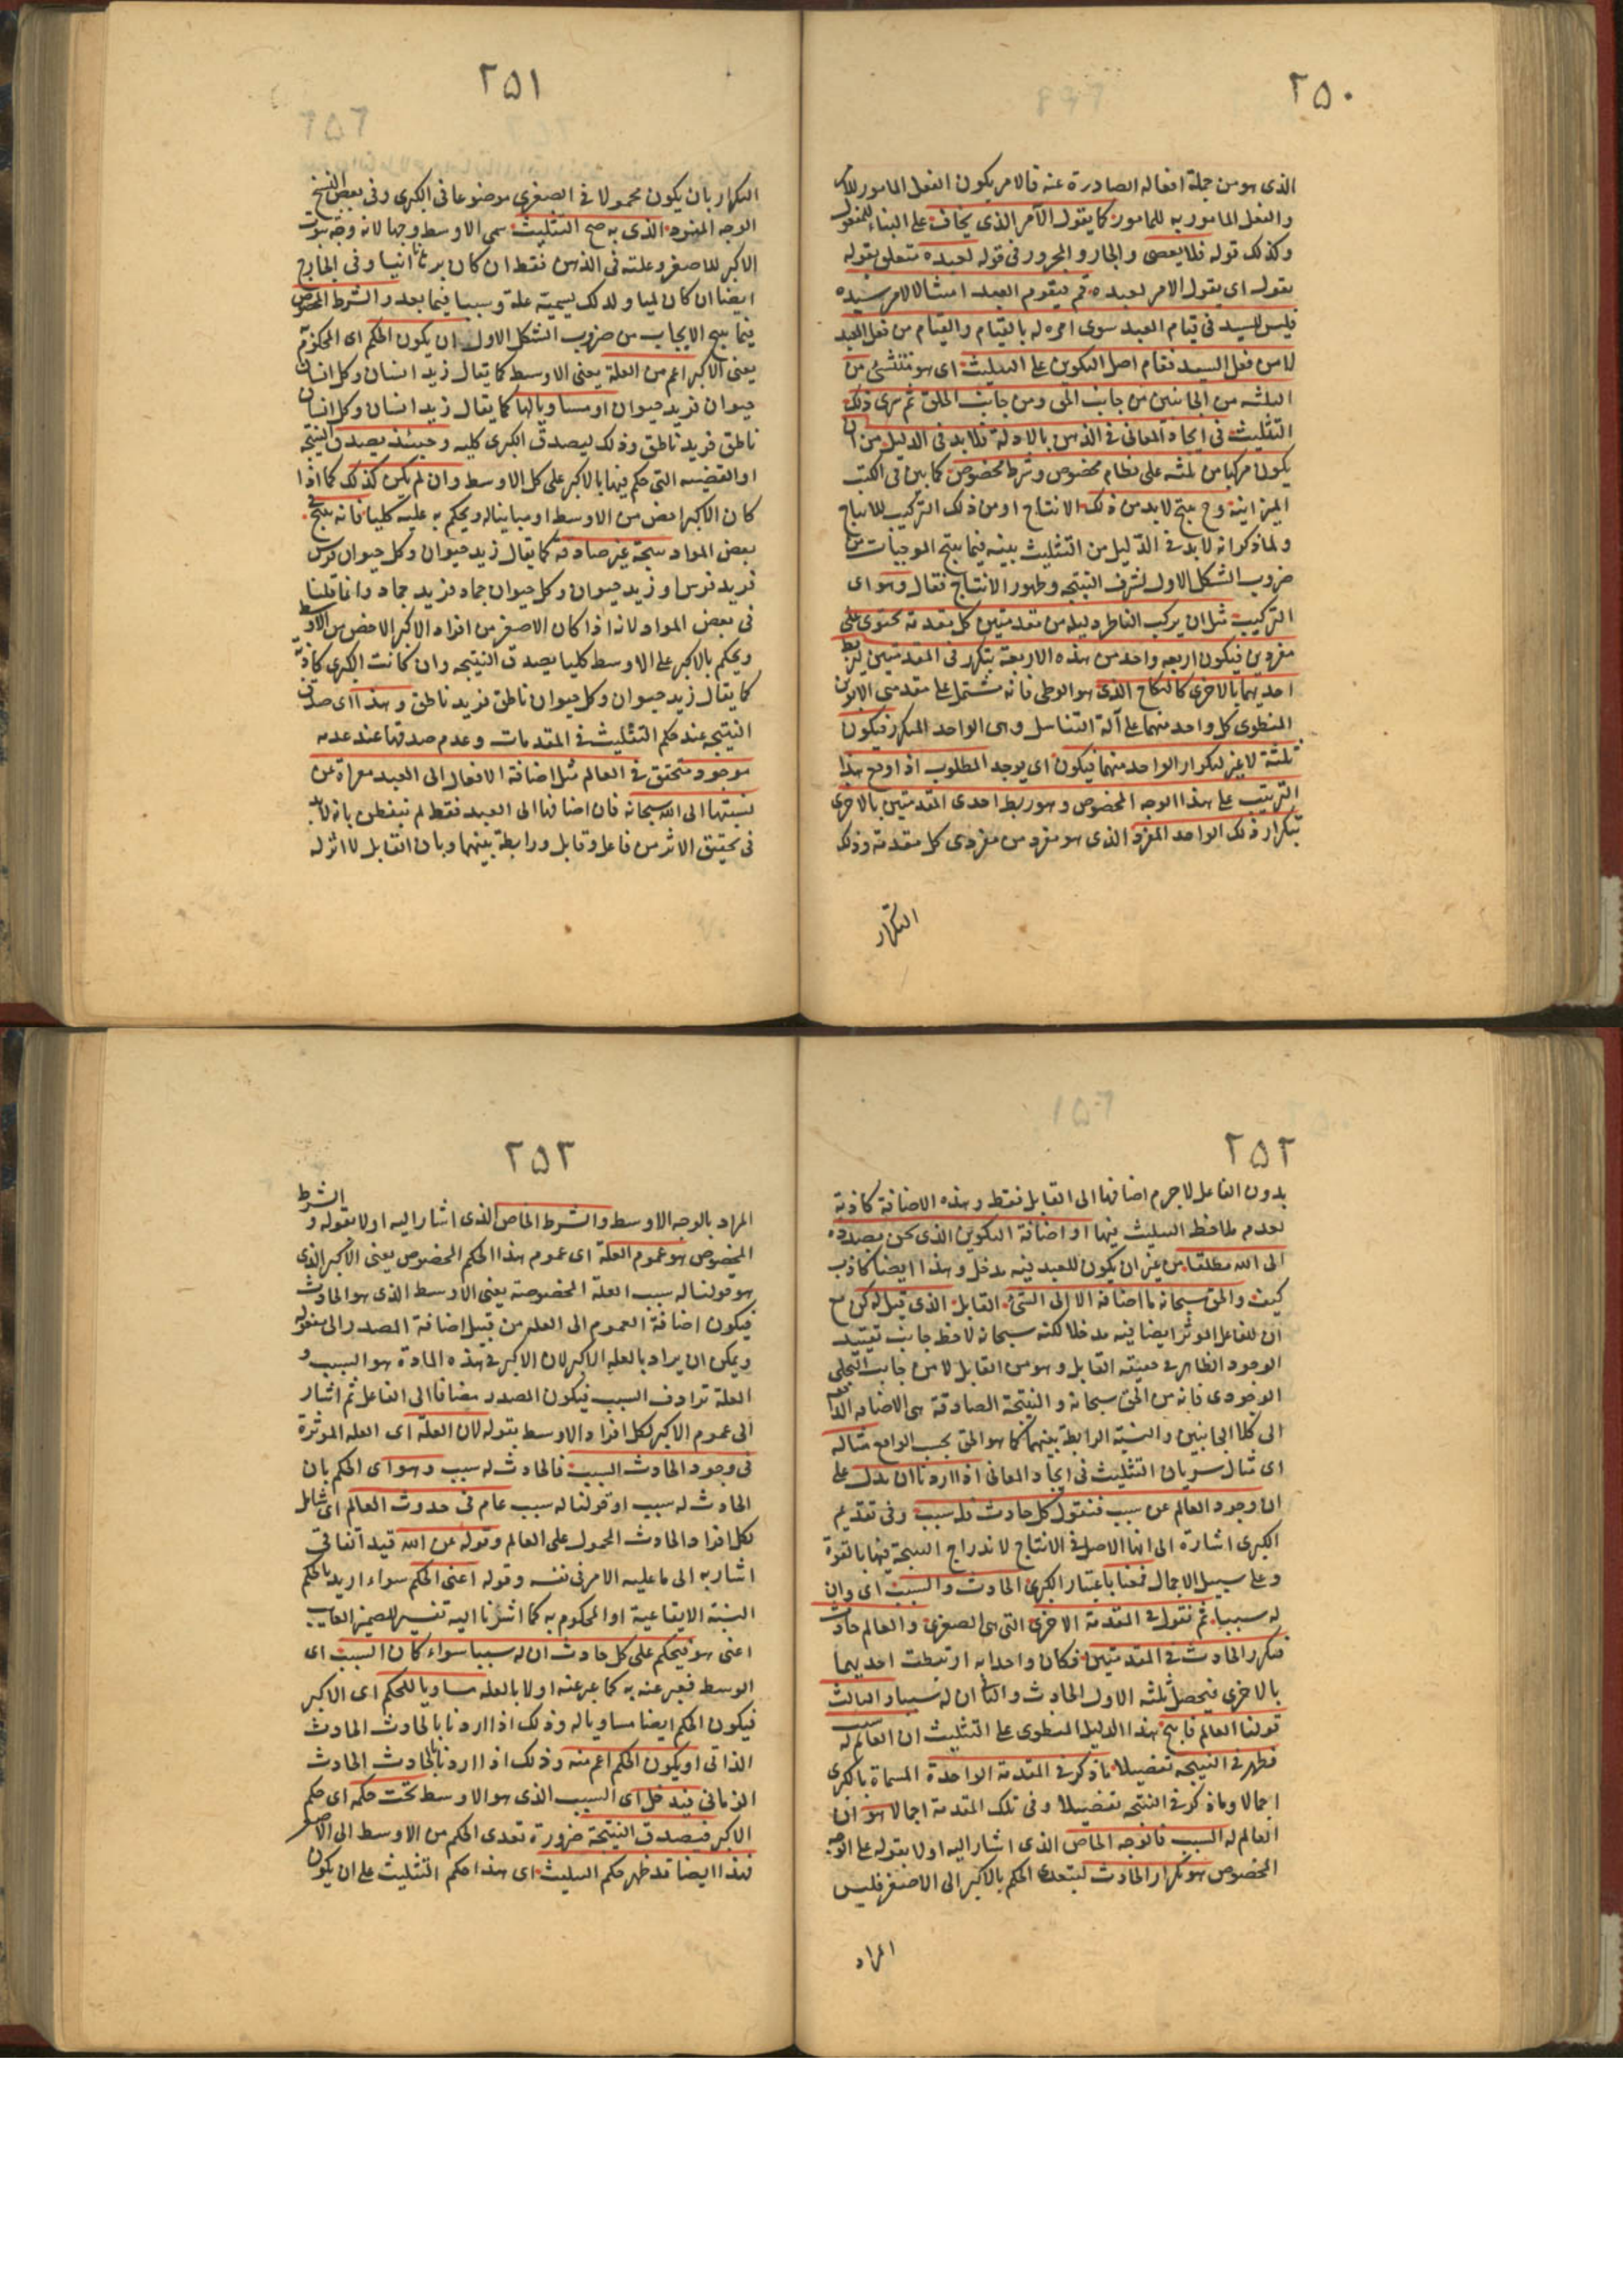 ٢٥٠
الذى هو من جملة افعاله الصادرة عنه فالامر يكون الفعل المامور للآمر
والفعل المامور به للمامور كما يقول الآمر الذى يخاف على البناء للمفعول
وكذلك قوله فلا يعصى والجار والمجرور فى قوله لعبده متعلق بقوله
يقول اى يقول الامر لعبده قم فيقوم العبد امتثالا لامر سيده
فليس للسيد فى قيام العبد سوى امره له بالقيام والقيام من فعل العبد
لا من فعل السيد فقام اصل التكوين على التثليث اى هو منتشئ من
الثلثه من الجانبين من جانب الحق ومن جانب الخلق ثم سرى ذلك
التثليث فى ايجاد المعانى فى الذهن بالادلة فلابد فى الدليل من ان
يكون مركبا من ثلثه على نظام مخصوص وشرط مخصوص كما بين فى الكتب
الميزانية وح ينتج لابد من ذلك الانتاج او من ذلك التركيب للانتاج
ولما ذكر انه لابد فى الدليل من التثليث بينه فيما ينتج الموجبات من
ضروب الشكل الاول لشرف النتيجه وظهور الانتاج فقال وهو اى
التركيب مثل ان يركب الناظر دليله من مقدمتين كل مقدمة تحتوى على
مفردين فيكون اربعه واحد من هذه الاربعة يتكرر فى المقدمتين ليربط
احديهما بالاخرى كالنكاح الذى هو الوطى فانه مشتمل على مقدمتى الابوين
المنطوى كل واحد منهما على آلة التناسل وهى الواحد المتكرر فيكون
ثلثة لا غير لتكرار الواحد منهما فيكون اى يوجد المطلوب اذا وقع هذا
الترتيب على هذا الوجه المخصوص وهو ربط احدى المقدمتين بالاخرى
بتكرار ذلك الواحد المفرد الذى هو مفرد من مفردى كل مقدمة وذلك
التكرار
٢٥١
التكرار بان يكون محمولا فى الصغرى موضوعا فى الكبرى وفى بعض النسخ
الوجه المفرد الذى به صح التثليث سمى الاوسط وجها لانه وجه ثبوت
الاكبر للاصغر وعلته فى الذهن فقط ان كان برهانا انيا وفى الخارج
ايضا ان كان لميا ولذلك يسميه علة وسببا فيما بعد والشرط المخصوص
فيما ينتج الايجاب من ضروب الشكل الاول ان يكون الحكم اى المحكوم به
يعنى الاكبر اعم من العلة يعنى الاوسط كما يقال زيد انسان وكل انسان
حيوان فزيد حيوان او مساويا لها كما يقال زيد انسان وكل انسان
ناطق فزيد ناطق وذلك ليصدق الكبرى كليه وحينئذ يصدق النتيجة
او القضيه التى حكم فيها بالاكبر على كل الاوسط وان لم يكن كذلك كما اذا
كان الاكبر اخص من الاوسط او مباينا له ويحكم به عليه كليا فانه ينتج فى
بعض المواد نتيجة غير صادقة كما يقال زيد حيوان وكل حيوان فرس
فزيد فرس او زيد حيوان وكل حيوان جماد فزيد جماد وانما قلنا
فى بعض المواد لانه اذا كان الاصغر من افراد الاكبر الاخص من الاوسط
ويحكم بالاكبر على الاوسط كليا يصدق النتيجه وان كانت الكبرى كاذبة
كما يقال زيد حيوان وكل حيوان ناطق فزيد ناطق وهذا اى صدق
النتيجه عند حكم التثليث فى المقدمات وعدم صدقها عند عدمه
موجود متحقق فى العالم مثل اضافة الافعال الى العبد معراة عن
نسبتها الى الله سبحانه فان اضافها الى العبد فقط لم يتفطن بانه لابد
فى تحقيق الاثر من فاعل وقابل ورابطة بينهما وبان القابل لا اثر له
٢٥٢
بدون الفاعل لا جرم اضافها الى القابل فقط وهذه الاضافة كاذبة
لعدم ملاحظ التثليث فيها او اضافة التكوين الذى نحن بصدده
الى الله مطلقا من غير ان يكون للعبد فيه مدخل وهذا ايضا كاذب
كيف والحق سبحانه ما اضافه الا الى الشئ القابل الذى قيل له كن مع
ان للفاعل الموثر ايضا فيه مدخلا لكنه سبحانه لاحظ جانب تقييد
الوجود الظاهر فى حقيقة القابل وهو من القابل لا من جانب التجلى
الوجودى فانه من الحق سبحانه والنتيجة الصادقة هى الاضافه
الى كلا الجانبين والنسبة الرابطة بينهما كما هو الحق بحسب الواقع مثاله
اى مثال سريان التثليث فى ايجاد المعانى اذا اردنا ان ندل على
ان وجود العالم عن سبب فنقول كل حادث فله سبب وفى تقديم
الكبرى اشارة الى انها الاصل فى الانتاج لاندراج النتيجة فيها بالقوة
وعلى سبيل الاجمال فمعنا باعتبار الكبرى الحادث والسبب اى وان
له سببا ثم نقول فى المقدمة الاخرى التى هى الصغرى والعالم حادث
فتكرر الحادث فى المقدمتين فكان واحدا به ارتبطت احديهما
بالاخرى فيحصل ثلثه الاول الحادث والثانى ان له سببا والثالث
قولنا العالم فانتج هذا الدليل المنطوى على التثليث ان العالم له سبب
فظهر فى النتيجه تفصيلا ما ذكر فى المقدمة الواحدة المسماة بالكبرى
اجمالا وما ذكر فى النتيجه تفصيلا وفى تلك المقدمة اجمالا هو ان
العالم له السبب فالوجه الخاص الذى اشار اليه اولا بقوله على الوجه
المخصوص هو تكرار الحادث ليتعدى الحكم بالاكبر الى الاصغر فليس
المراد
٢٥٣
المراد بالوجه الاوسط والشرط الخاص الذى اشار اليه اولا بقوله والشرط
المخصوص هو عموم العلة اى عموم هذا الحكم المخصوص يعنى الاكبر الذى
هو قولنا له سبب العلة المخصوصة يعنى الاوسط الذى هو الحادث
فيكون اضافة العموم الى العله من قبيل اضافة المصدر الى مفعوله
ويمكن ان يراد بالعله الاكبر لان الاكبر فى هذه المادة هو السبب و
العلة ترادف السبب فيكون المصدر مضافا الى الفاعل ثم اشار
الى عموم الاكبر لكل افراد الاوسط بقوله لان العلة اى العله الموثرة
فى وجود الحادث السبب فالحادث له سبب وهو اى الحكم بان
الحادث له سبب او قولنا له سبب عام فى حدوث العالم اى شامل
لكل افراد الحادث المحمول على العالم وقوله عن الله قيد اتفاقى
اشار به الى ما عليه الامر فى نفسه وقوله اعنى الحكم سواء اريد بالحكم
النسبة الايقاعية او المحكوم به كما اشرنا اليه تفسير للضمير الغايب
اعنى هو فيحكم على كل حادث ان له سببا سواء كان السبب اى
الوسط فيعبر عنه به كما عبر عنه اولا بالعله مساويا للحكم اى الاكبر
فيكون الحكم ايضا مساويا له وذلك اذا اردنا بالحادث الحادث
الذاتى او يكون الحكم اعم منه وذلك اذا اردنا بالحادث الحادث
الزمانى فيدخل اى السبب الذى هو الاوسط تحت حكمه اى حكم
الاكبر فيصدق النتيجة ضرورة تعدى الحكم من الاوسط الى الاصغر
فهذا ايضا قد ظهر حكم التثليث اى هذا حكم التثليث على ان يكون